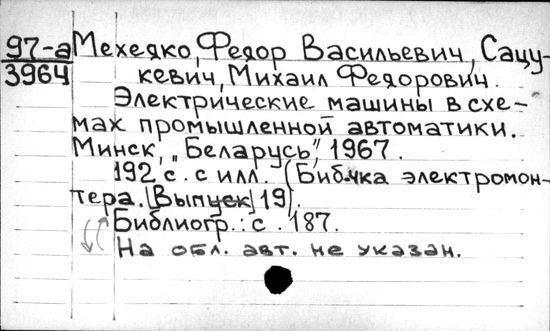 97-а Мехедко, Федор Васильевич, Сацу-
3964 кевич, Михаил Федорович.
Электрические машины в схе-
мах промышленной автоматики.
Минск, „Беларусь", 1967.
192 с. с илл. (Биб-чка электромон-
тера. [Выпуск] 19).
Библиогр.: с. 187.
На обл. авт. не указан.